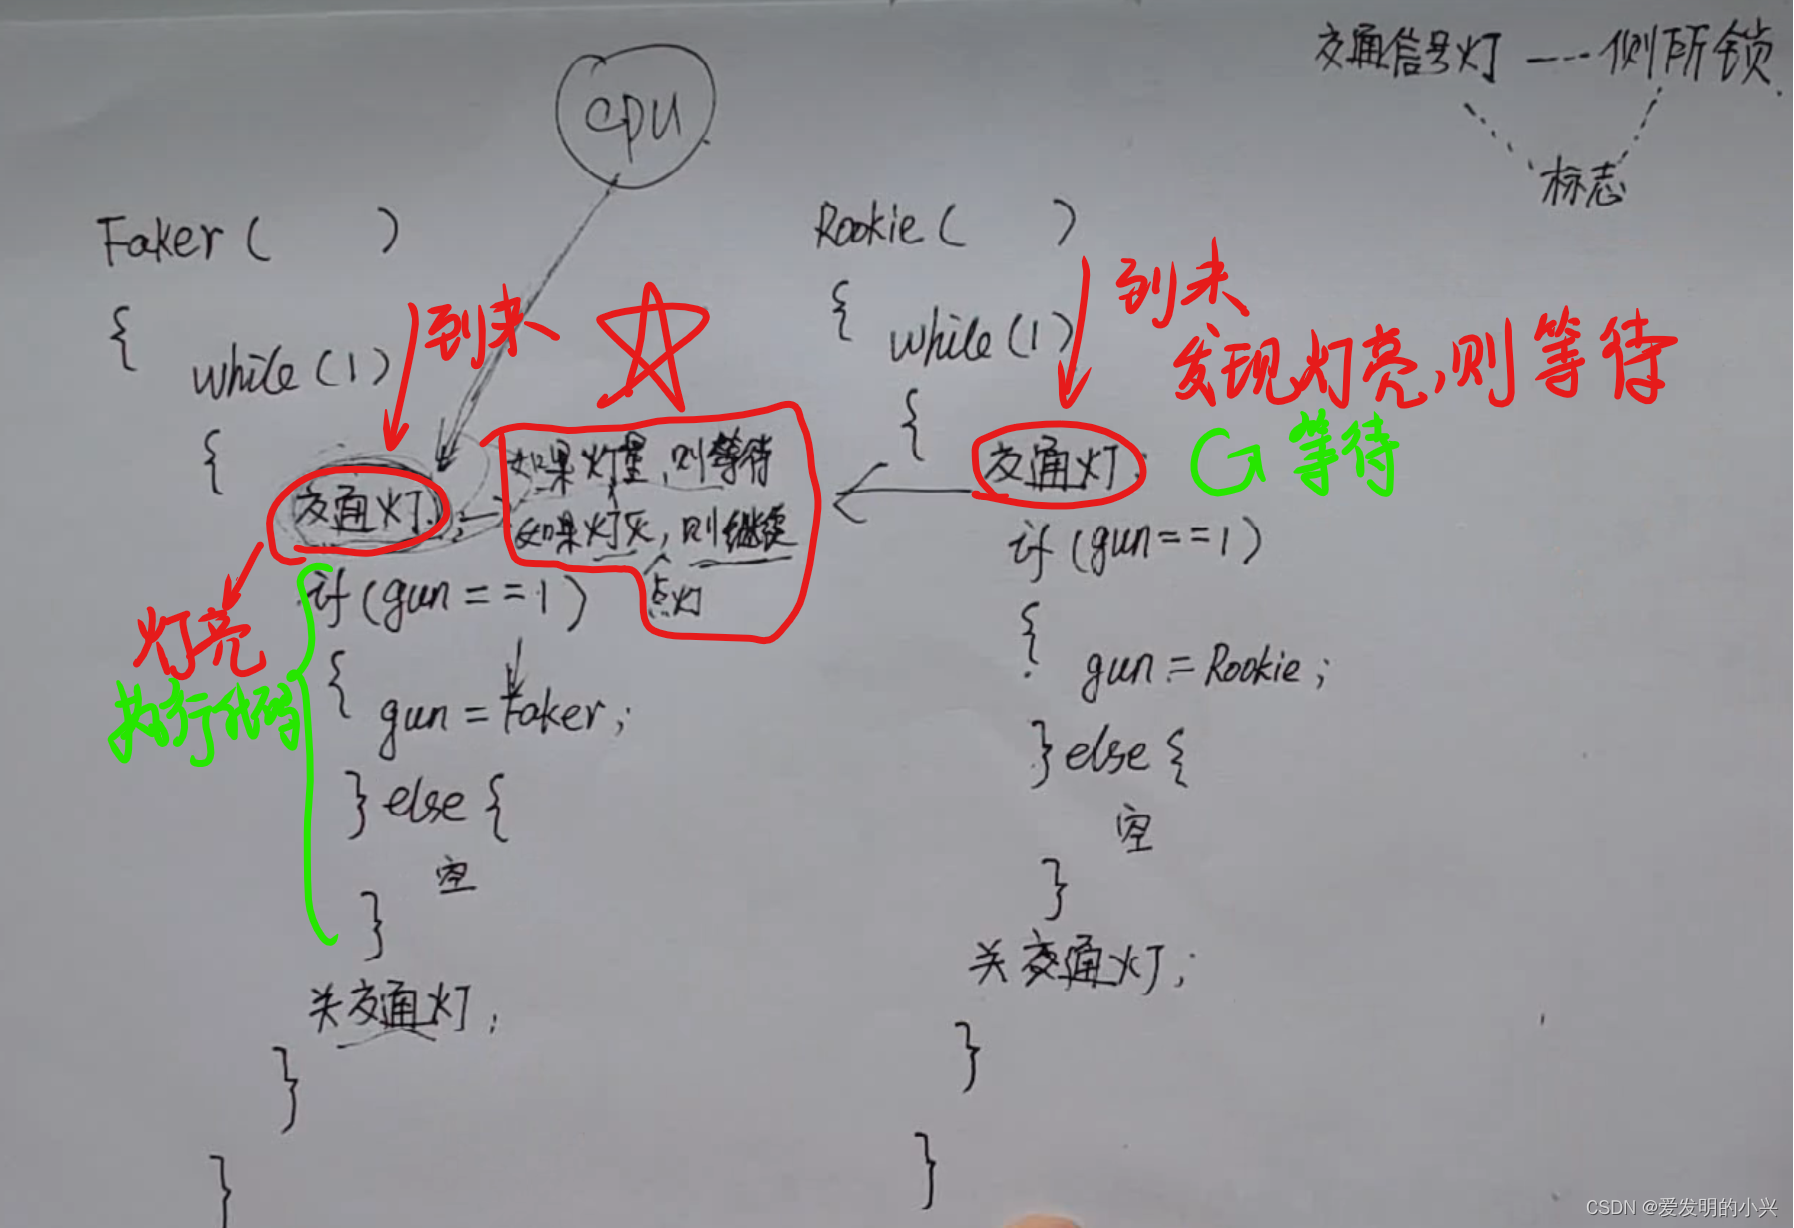 交通信号灯 ---- 侧所锁
标志
cpu
Faker ( )
{
while (1)
{
到来
交通灯;
如果灯量,则等待
如果灯灭,则继续
点灯
灯亮
执行代码
if (gun == 1)
{
gun = Faker;
} else {
空
}
关交通灯;
}
}
Rookie ( )
{
while (1)
{
到来
发现灯亮,则等待
等待
交通灯;
if (gun == 1)
{
gun = Rookie;
} else {
空
}
关交通灯;
}
}
CSDN @爱发明的小兴